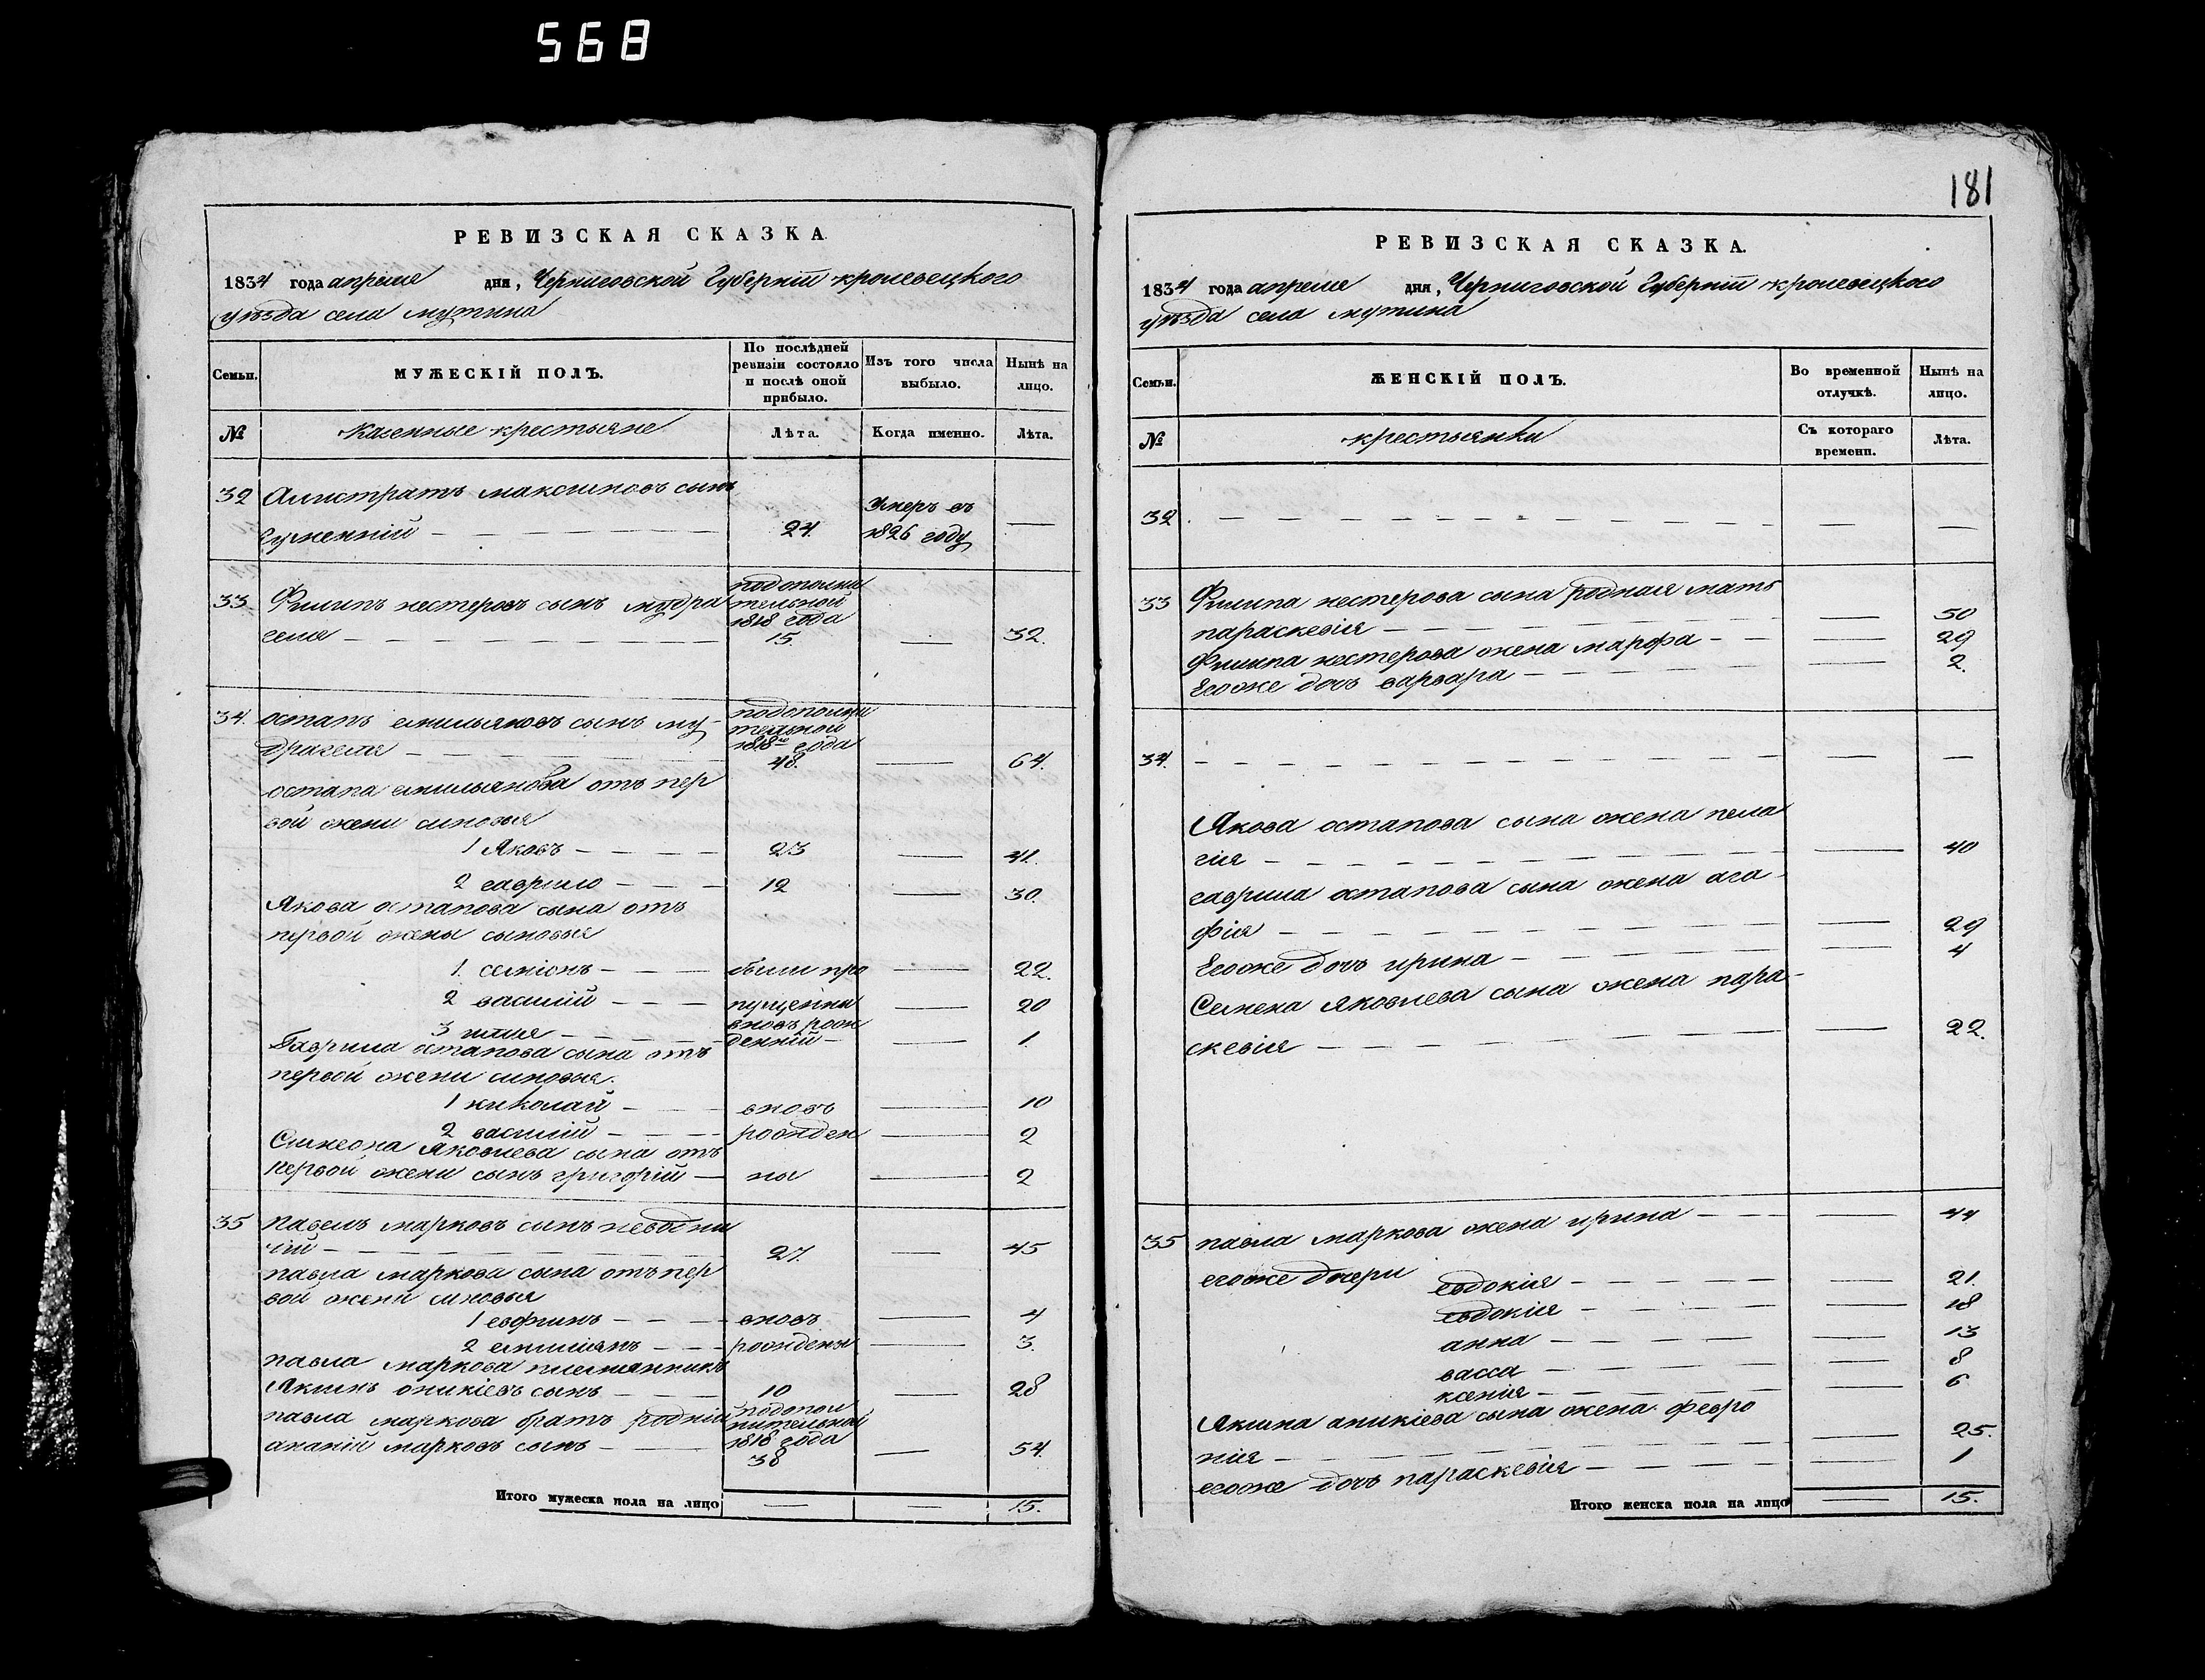 568
РЕВИЗСКАЯ СКАЗКА.
1834 года апреля дня, Черниговской Губерніи кролевецкого
уѣзда села мутина
Семьи.
МУЖЕСКІЙ ПОЛЪ.
По послѣдней ревизіи состояло и послѣ оной прибыло.
Изъ того числа выбыло.
Нынѣ на лицо.
№
Казенные крестьяне
Лѣта.
Когда именно.
Лѣта.
32 Алистратъ максимовъ сынъ
Гуменній — 24. Умеръ въ 1826 году —
33 Филипъ нестеровъ сынъ мудра
геля — подополнительной 1818 года 15. — 32.
34. остапъ емильяновъ сынъ му-
драгеля — подополнительной 1818го года 48. — 64.
остапа емильянова отъ пер
вой жени синовья
1 Яковъ — 23 — 41.
2 гаврило — 12 — 30.
Якова остапова сына отъ
первой жены сыновья
1. семіонъ — были про — 22.
2 василій — пущенни — 20
3 илия — вновъ рожденній — 1.
Гаврила остапова сына отъ
первой жени синовья.
1 николай — вновъ — 10
2 василій — рожден — 2
Симеона Яковлева сына отъ
первой жени сынъ григорій — ны — 2
35 павелъ марковъ синъ неводни
чій — 27. — 45
павла маркова сына отъ пер
вой жени синовья
1 евфимъ — вновъ — 4
2 емиліянъ — рождены — 3.
павла маркова племянникъ
Якимъ оникіевъ сынъ — 10 — 28
павла маркова братъ родній
ананій марковъ сынъ — подополнительной 1818 года 38 — 54.
Итого мужеска пола на лицо — — 15.
181
РЕВИЗСКАЯ СКАЗКА.
1834 года апреля дня, Черниговской Губерніи кролевецкого
уѣзда села мутина
Семьи.
ЖЕНСКІЙ ПОЛЪ.
Во временной отлучкѣ.
Нынѣ на лицо.
№
крестьянки
Съ котораго времени.
Лѣта.
32. — — —
33 Филипа нестерова сына родная мать
параскевія — — 50
Филипа нестерова жена марфа — — 29
Егоже дочъ варвара — — 2.
34. — — —
Якова остапова сына жена пела
гія — — 40
гаврила остапова сына жена ага-
фія — — 29
Егоже дочъ ирина — — 4
Семена Яковлева сына жена пара-
скевія — — 22.
35 павла маркова жена ирина — — 44
егоже дочери
евдокія — — 21.
евдокія — — 18
анна — — 13
васса — — 8
ксенія — — 6
Якима аникіева сына жена февро
нія — — 25.
егоже дочъ параскевія — — 1
Итого женска пола на лицо — 15.